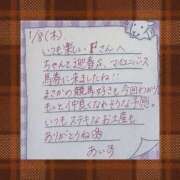 1/8(木)
いつも楽しいFさんへ
ちゃんと迎春なマイエンバス
馬券に来ましたね!!
まさかの競馬好きも今回わかり
もっと仲良くなれそうな予感。
いつもステキなお土産も
ありがとうねຯ
あいす